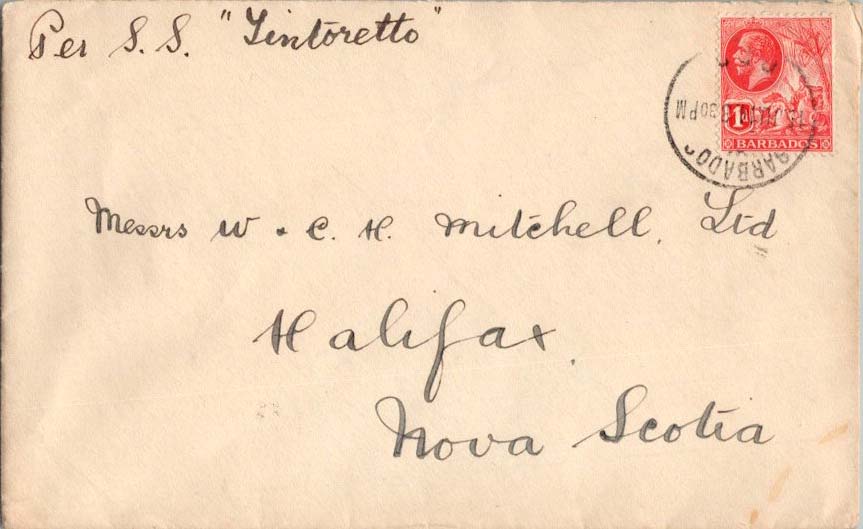 Per S. S. "Tintoretto"
1D
BARBADOS
BARBADOS
8 30 PM
Messrs W & C. H. Mitchell, Ltd
Halifax.
Nova Scotia